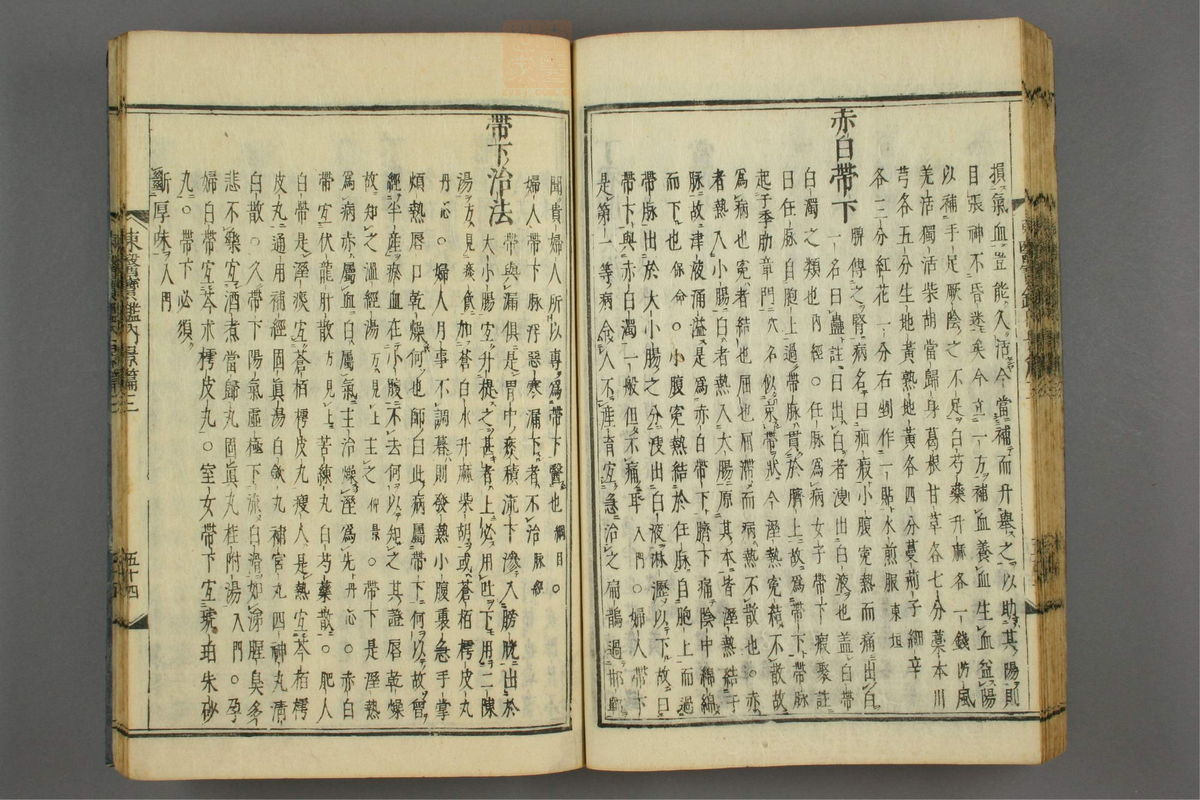 損氣血豈能久活今當補而升擧之以助其陽則
目張神不昏迷矣今立一方補血養血生血益陽
以補手足厥陰之不足白芍藥升麻各一錢防風
羌活獨活柴胡當歸身葛根甘草各七分藁本川
芎各五分生地黃熟地黃各四分蔓荊子細辛
各三分紅花一分右剉作一貼水煎服東垣
赤白帶下
脾傳之腎病名曰疝瘕小腹寃熱而痛出白
一名曰蠱註曰出白者溲出白液也盖白帶
白濁之類也內經○任脉爲病女子帶下瘕聚註
曰任脉自胞上過帶脉貫於臍上故爲帶下帶脉
起于季肋章門穴名似束帶狀今溼熱寃積不散故
爲病也寃者結也屈也屈滯而病熱不散也○赤
者熱入小腸白者熱入大腸原其本皆溼熱結于
脉故津液涌溢是爲赤白帶下臍下痛陰中綿綿
而下也保命○小腹寃熱結於任脉自胞上而過
帶脉出於大小腸之分溲出白液淋瀝以下故曰
帶下與赤白濁一般但不痛耳入門○婦人帶下
是第一等病令人不産育宜急治之扁鵲過邯鄲
聞貴婦人所以專爲帶下醫也綱目○
婦人帶下脉浮惡寒漏下者不治脉經
帶下治法
帶與漏俱是胃中痰積流下滲入膀胱出於
大小腸宜升提之甚者上必用吐下用二陳
湯方見痰飮加蒼白朮升麻柴胡或蒼栢樗皮丸
丹心○婦人月事不調暮則發熱小腹裏急手掌
煩熱唇口乾燥何也師曰此病屬帶下何以故曾
經半産瘀血在小腹不去何以知之其證唇乾燥
故知之溫經湯方見上主之仲景○帶下是溼熱
爲病赤屬血白屬氣主治燥溼爲先丹心○赤白
帶宜伏龍肝散方見上苦練丸白芍藥散○肥人
白帶是溼痰宜蒼栢樗皮丸瘦人是熱宜芩栢樗
皮丸通用補經固眞湯白斂丸補宮丸四神丸淸
白散○久帶下陽氣虛極下流白滑如涕腥臭多
悲不樂宜酒煮當歸丸固眞丸桂附湯入門○孕
婦白帶宜芩朮樗皮丸○室女帶下宜琥珀朱砂
丸○帶下必須
斷厚味入門
五十四